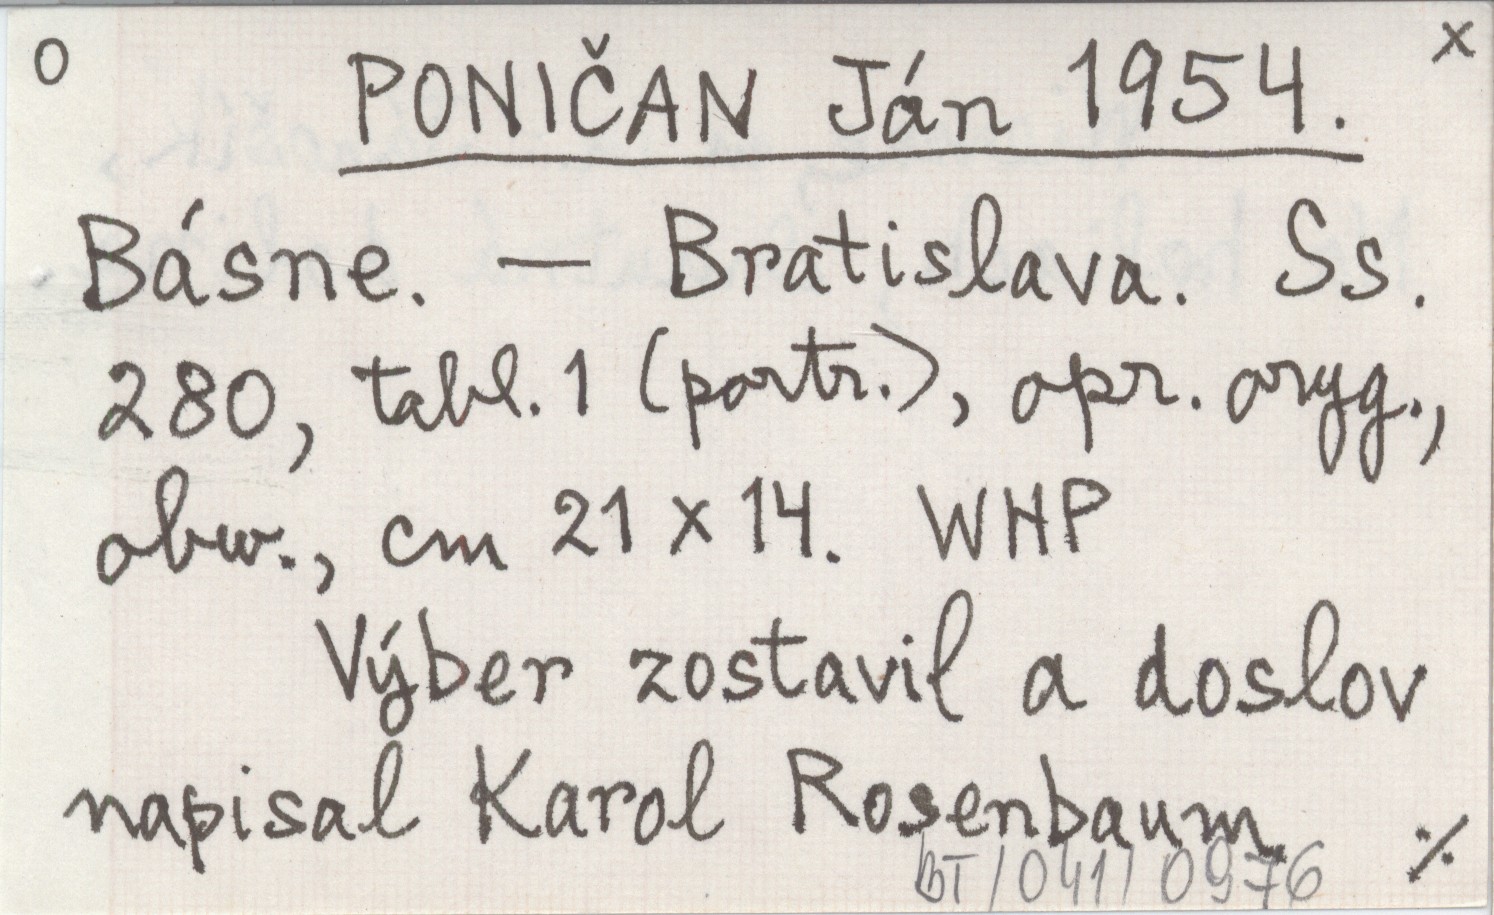 O PONIČAN Ján 1954. x
Básne. — Bratislava. Ss.
280, tabl. 1 (portr.), opr. oryg.,
obw., cm 21 x 14. WHP
Výber zostavil a doslov
napisal Karol Rosenbaum
BT/041/0976 ./.